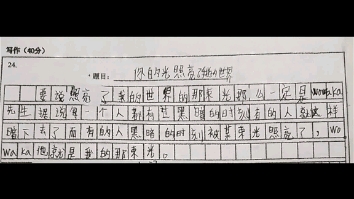 写作（40分）
24.
题目：你的光照亮了我的世界
要说照亮了我的世界的那束光，那么一定是wowaka
先生 说每一个人都有 黑暗的时刻有的人 这样
暗下去了而有的人黑暗的时刻被某束光照亮了，wo
waka 是我的那束光。